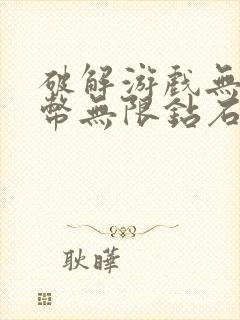 破解游戲無
幣無限鉆石
耿曄